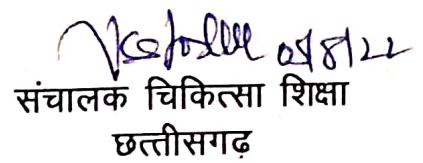 05/8/22
संचालक चिकित्सा शिक्षा
छत्तीसगढ़